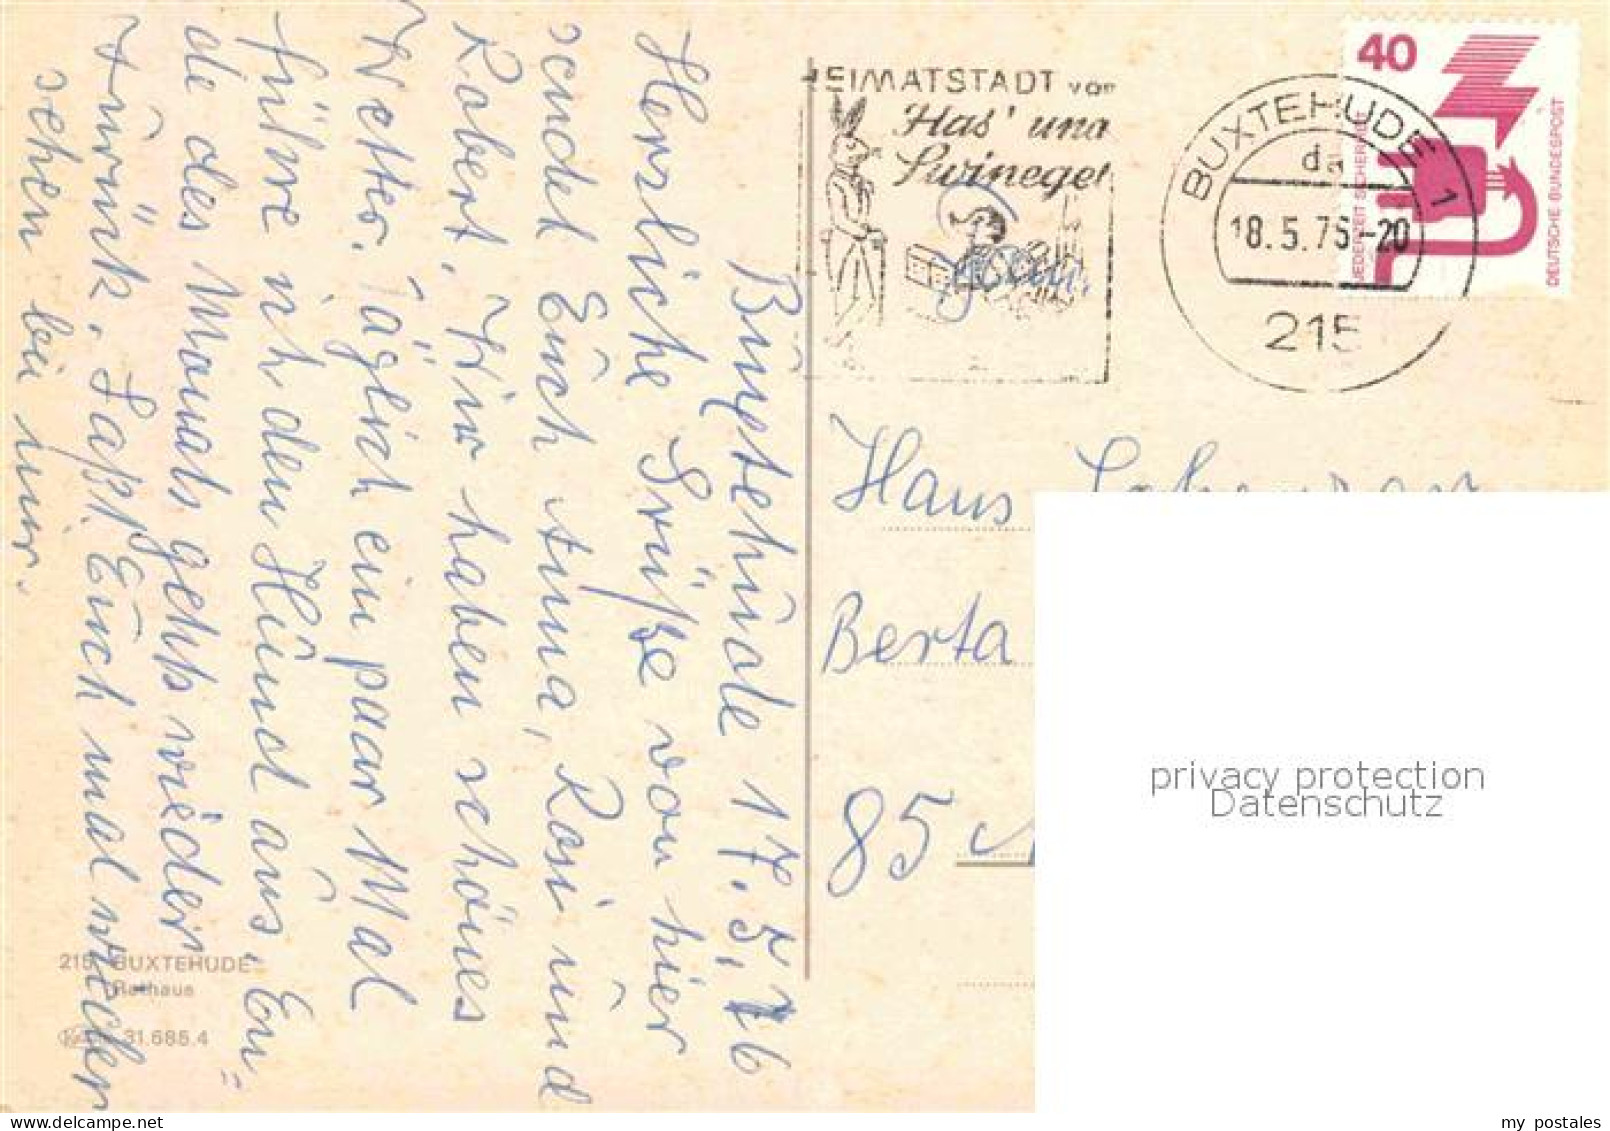 Buxtehude 17.5.76
Herzliche Grüße von hier
sendet Euch Anna, Rosi und
Robert. Wir haben schönes
Wetter. Täglich ein paar Mal
führe ich den Hund aus. En=
de des Monats gehts wieder
zurück. Laßt Euch mal wieder
sehen bei mir.
215 BUXTEHUDE
Rathaus
31.685.4
HEIMATSTADT von
Has' und
Swinegel
BUXTEHUDE 1
da
18.5.76-20
215
40
JEDERZEIT SICHERHEIT
DEUTSCHE BUNDESPOST
Hans
Berta
85
privacy protection
Datenschutz
my postales